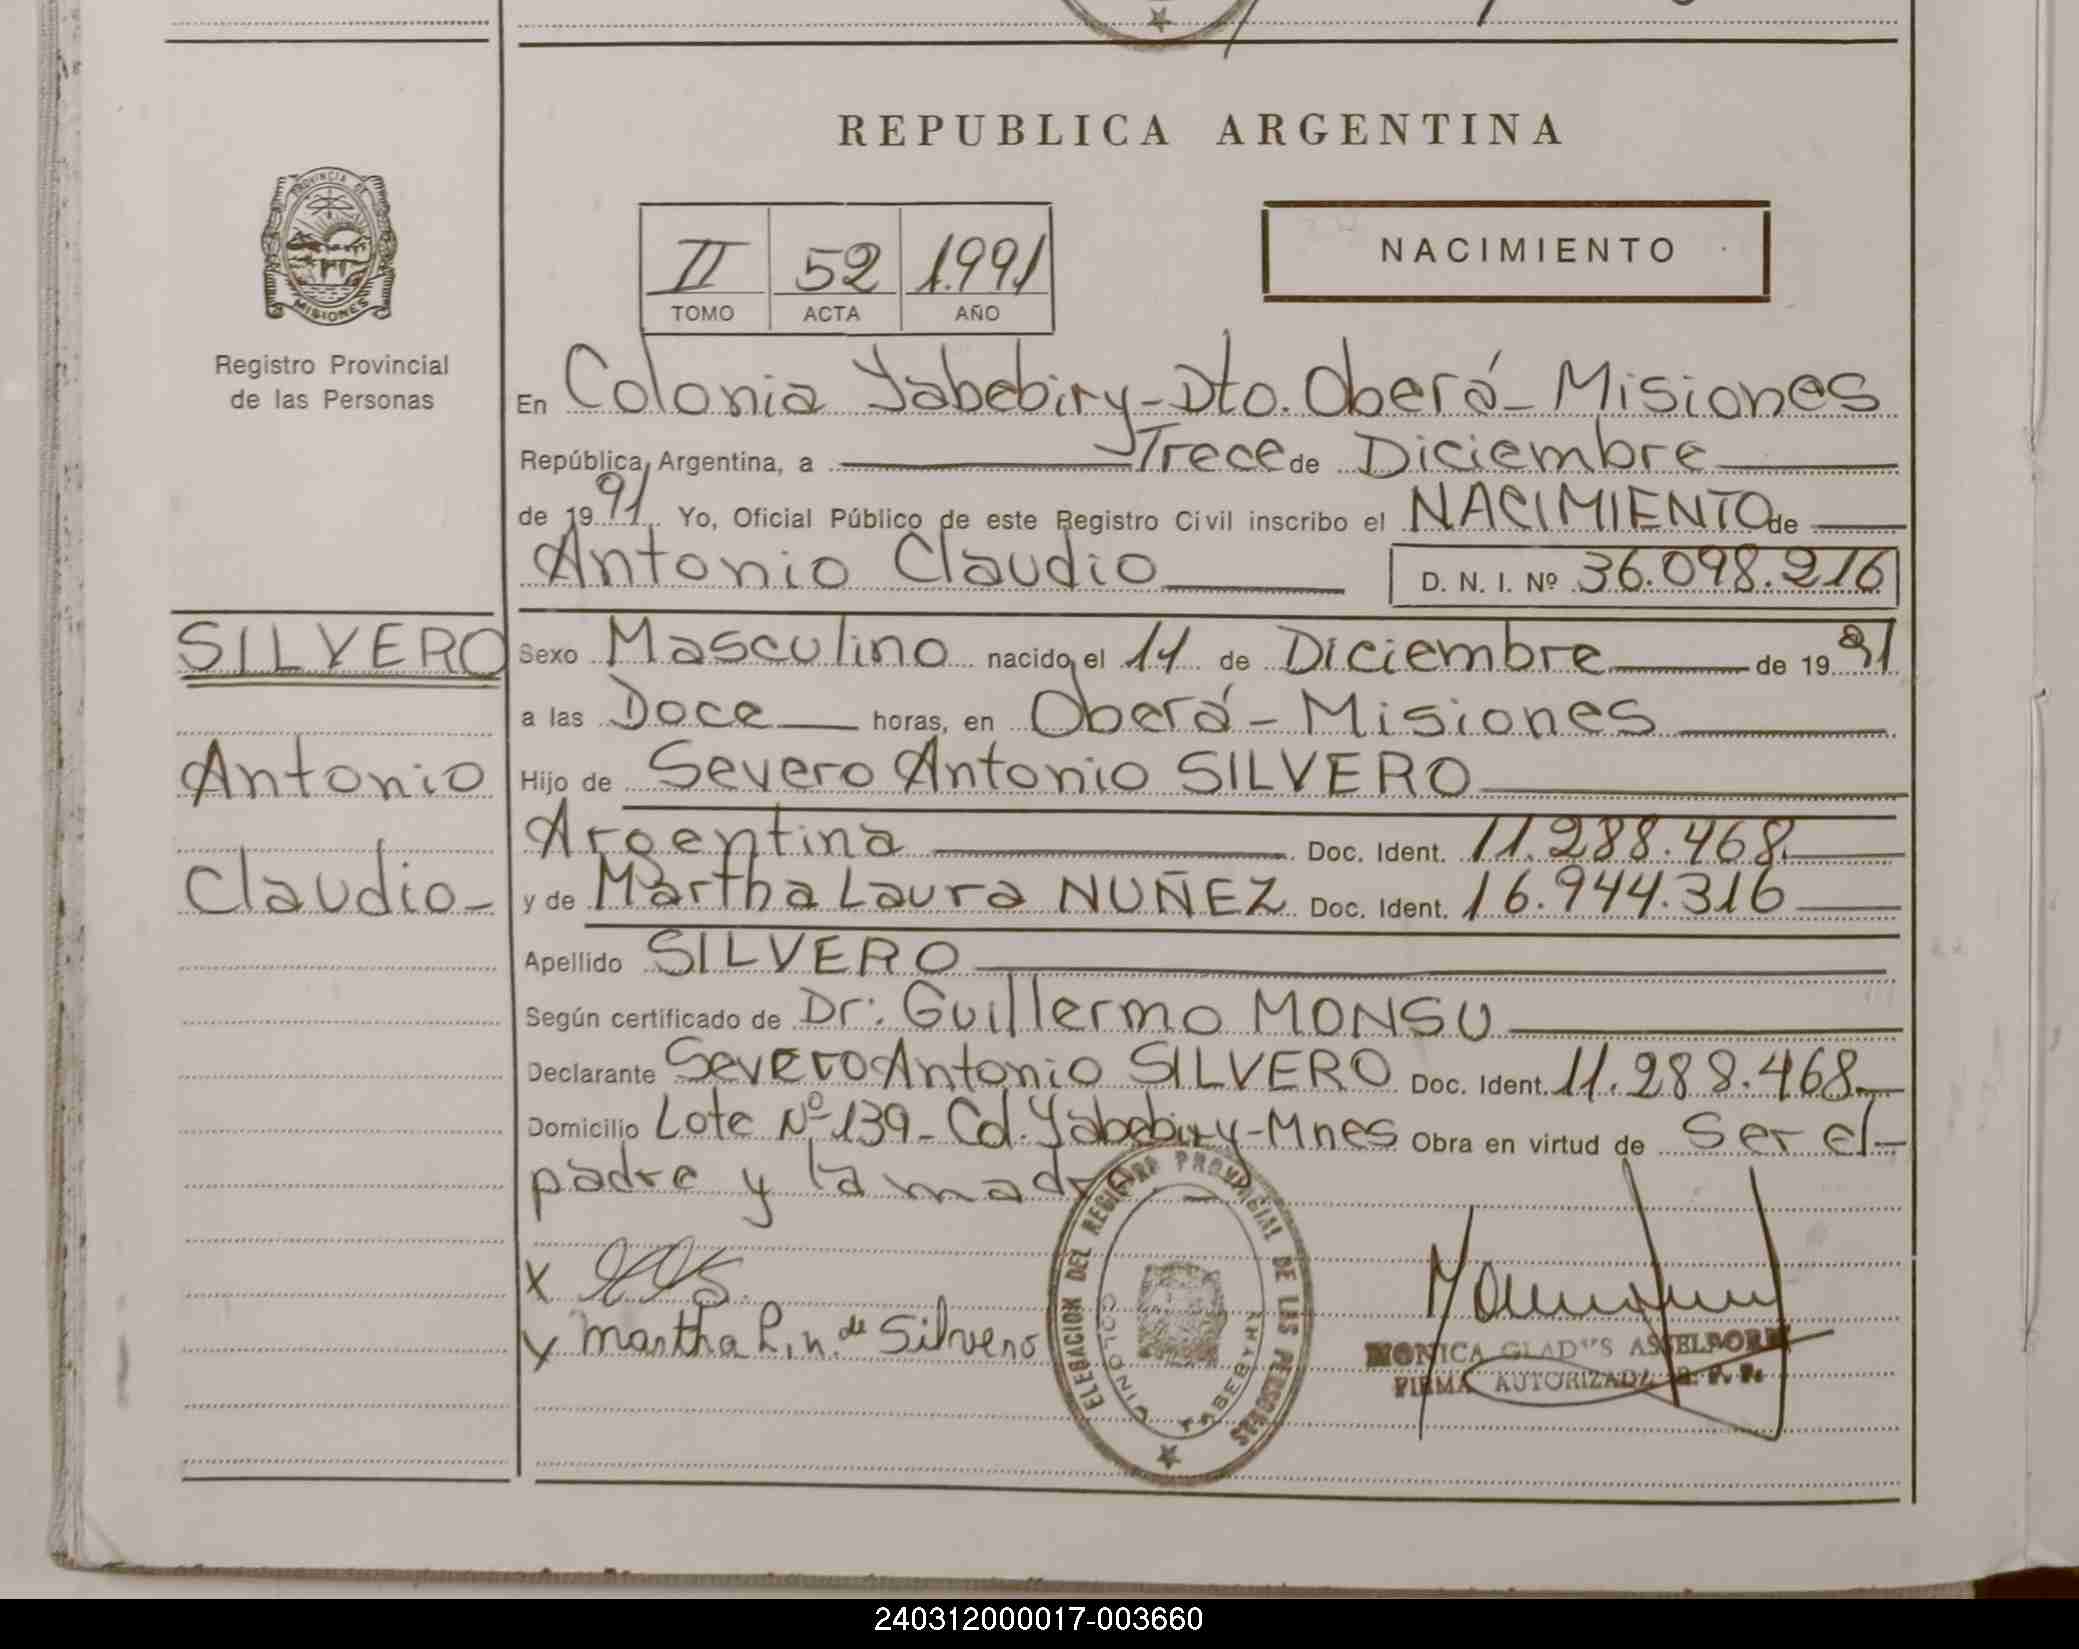 REPUBLICA ARGENTINA
PROVINCIA DE MISIONES
Registro Provincial
de las Personas
II 52 1.991
TOMO ACTA AÑO
NACIMIENTO
En Colonia Yabebiry-Dto. Oberá-Misiones
República Argentina, a Trece de Diciembre
de 1991 Yo, Oficial Público de este Registro Civil inscribo el NACIMIENTO de
Antonio Claudio D. N. I. Nº 36.098.216
SILVERO
Antonio
Claudio-
Sexo Masculino nacido el 11 de Diciembre de 1991
a las Doce horas, en Oberá-Misiones
Hijo de Severo Antonio SILVERO
Argentina Doc. Ident. 11.288.468.
y de Martha Laura NUÑEZ Doc. Ident. 16.944.316
Apellido SILVERO
Según certificado de Dr: Guillermo MONSU
Declarante Severo Antonio SILVERO Doc. Ident. 11.288.468.
Domicilio Lote Nº 139-Col. Yabebiry-Mnes Obra en virtud de Ser el-
padre y la madre
X
X Martha L. n. de Silvero
DELEGACION DEL REGISTRO PROVINCIAL DE LAS PERSONAS
COLONIA YABEBIRY
MONICA GLADYS
FIRMA AUTORIZADA R. P. P.
240312000017-003660